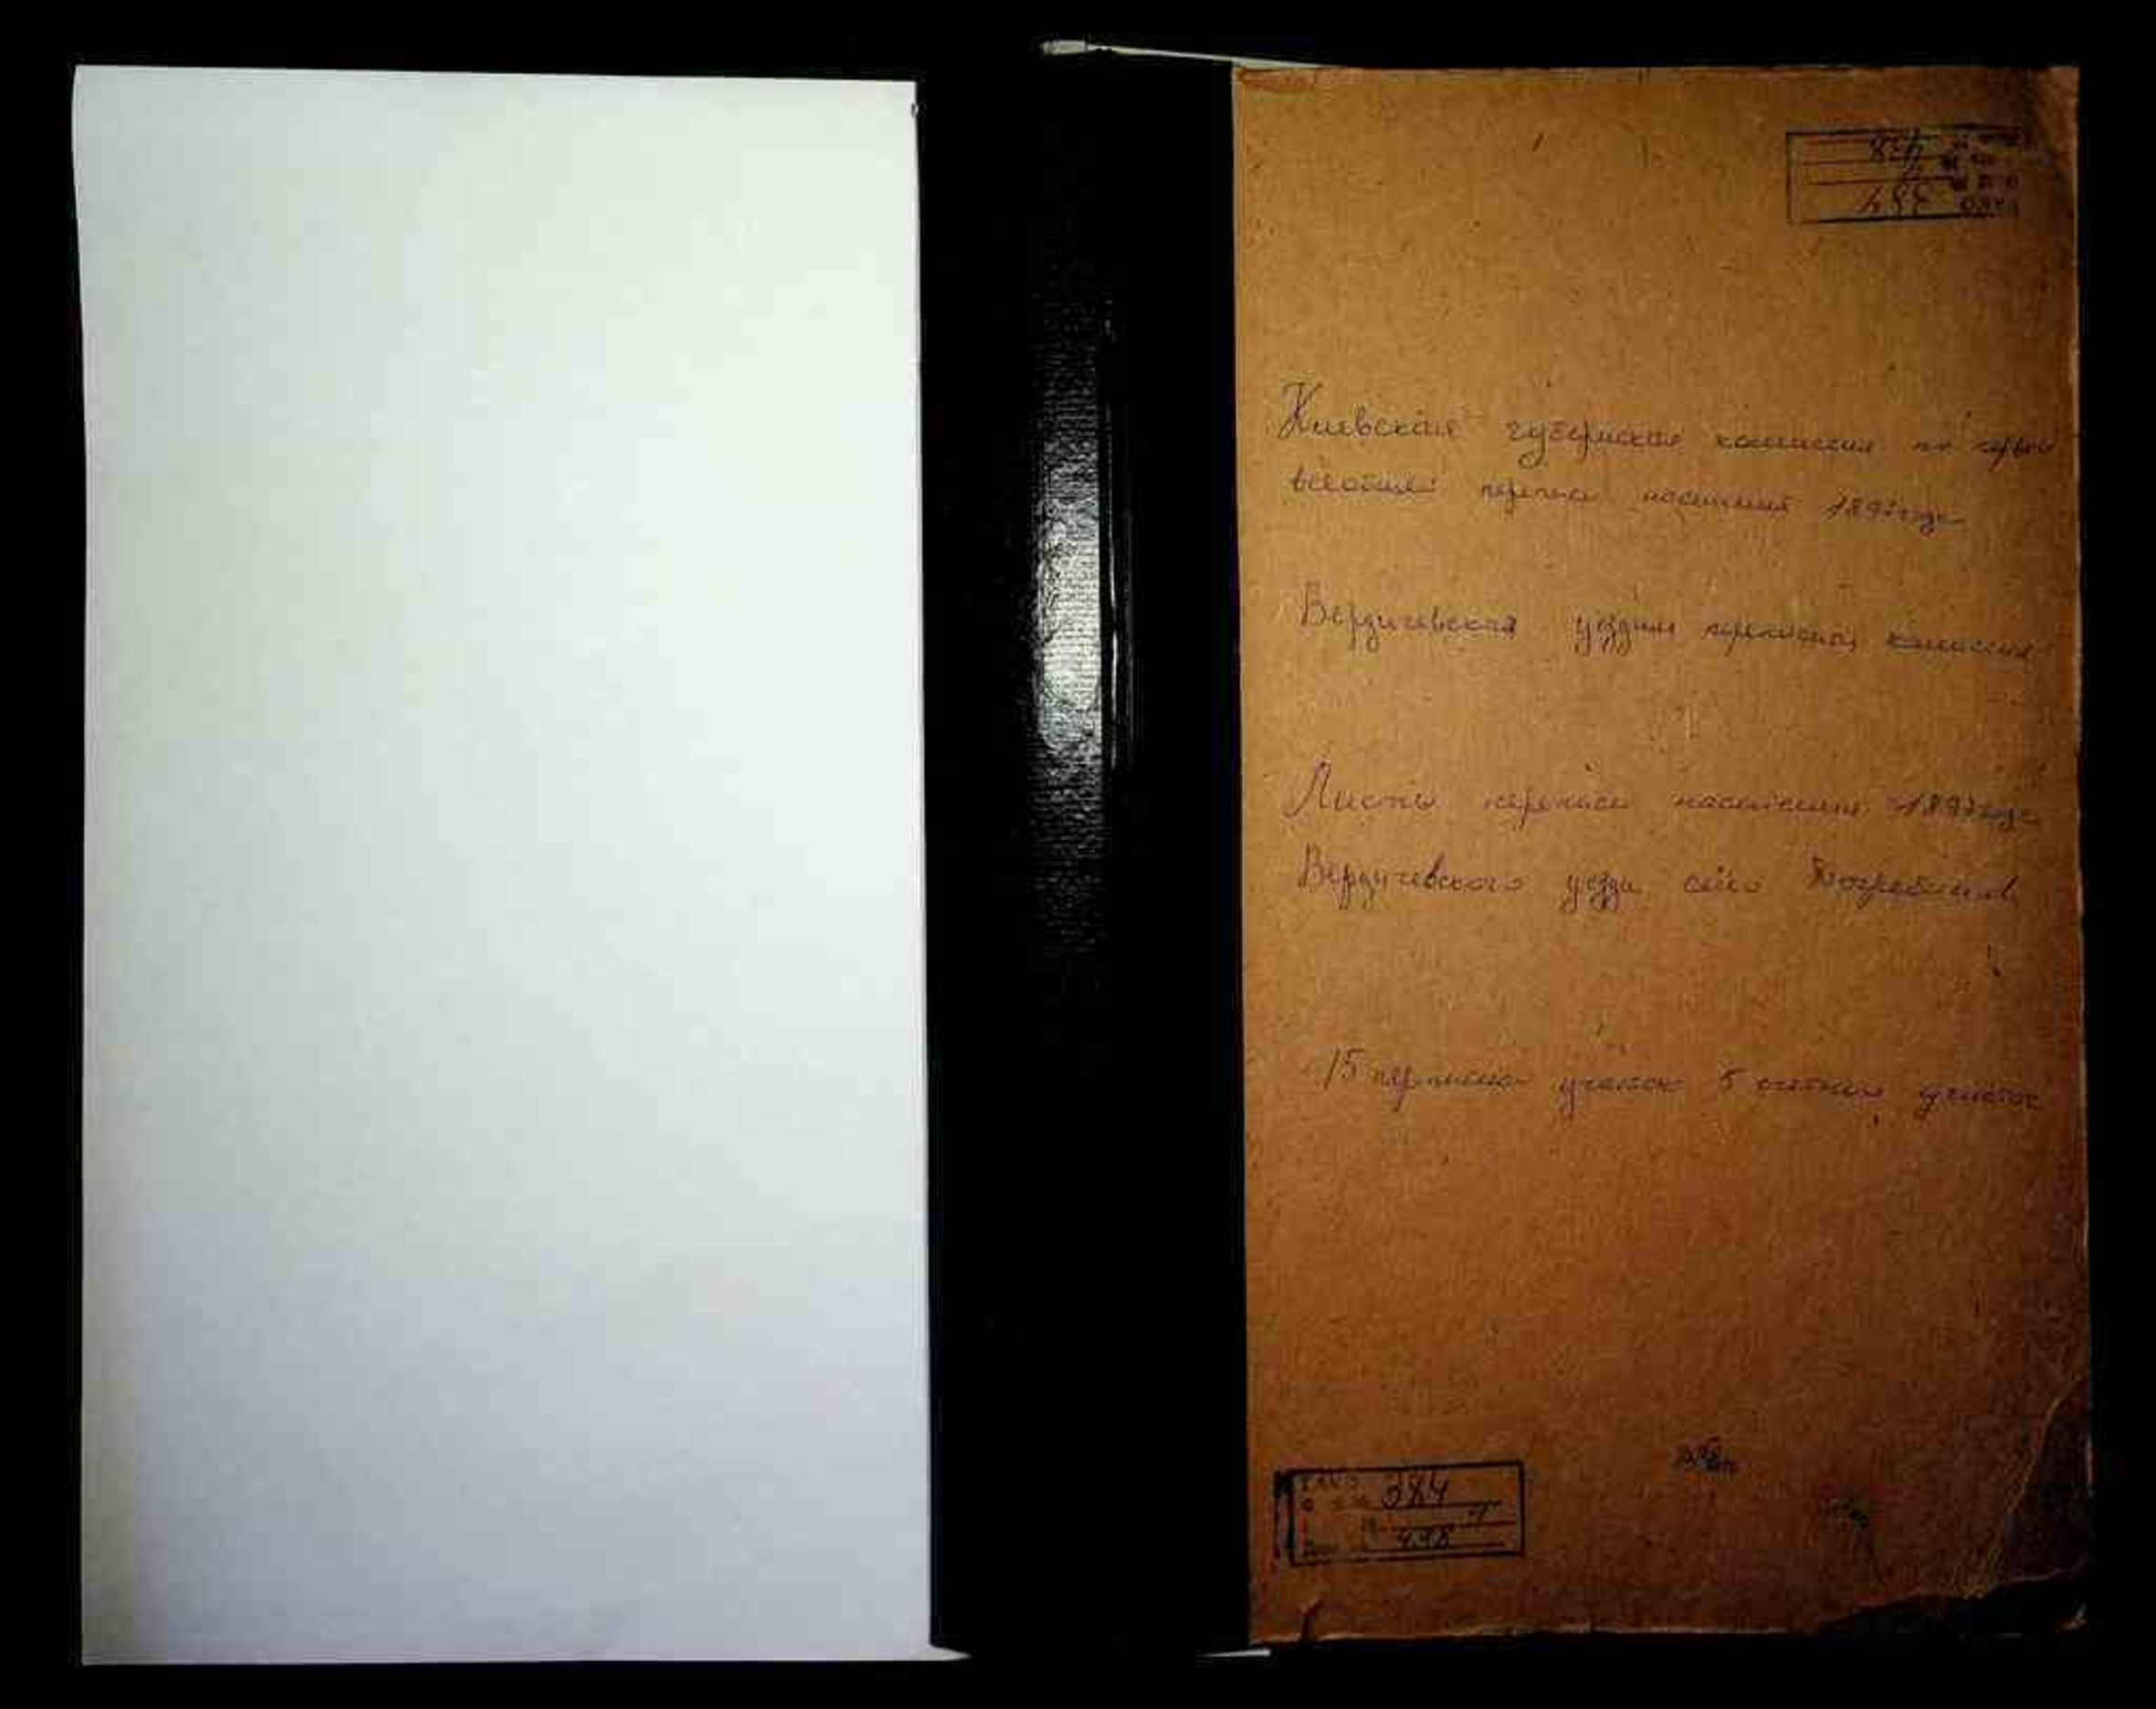 438
384
Киевская губернская комиссия по первой
всеобщей переписи населения 1897 года
Бердичевская уездная переписная комиссия
Листы переписи населения 1897 года
Бердичевского уезда село Погребище
15 переписной участок 5 счетный участок
384
1
438